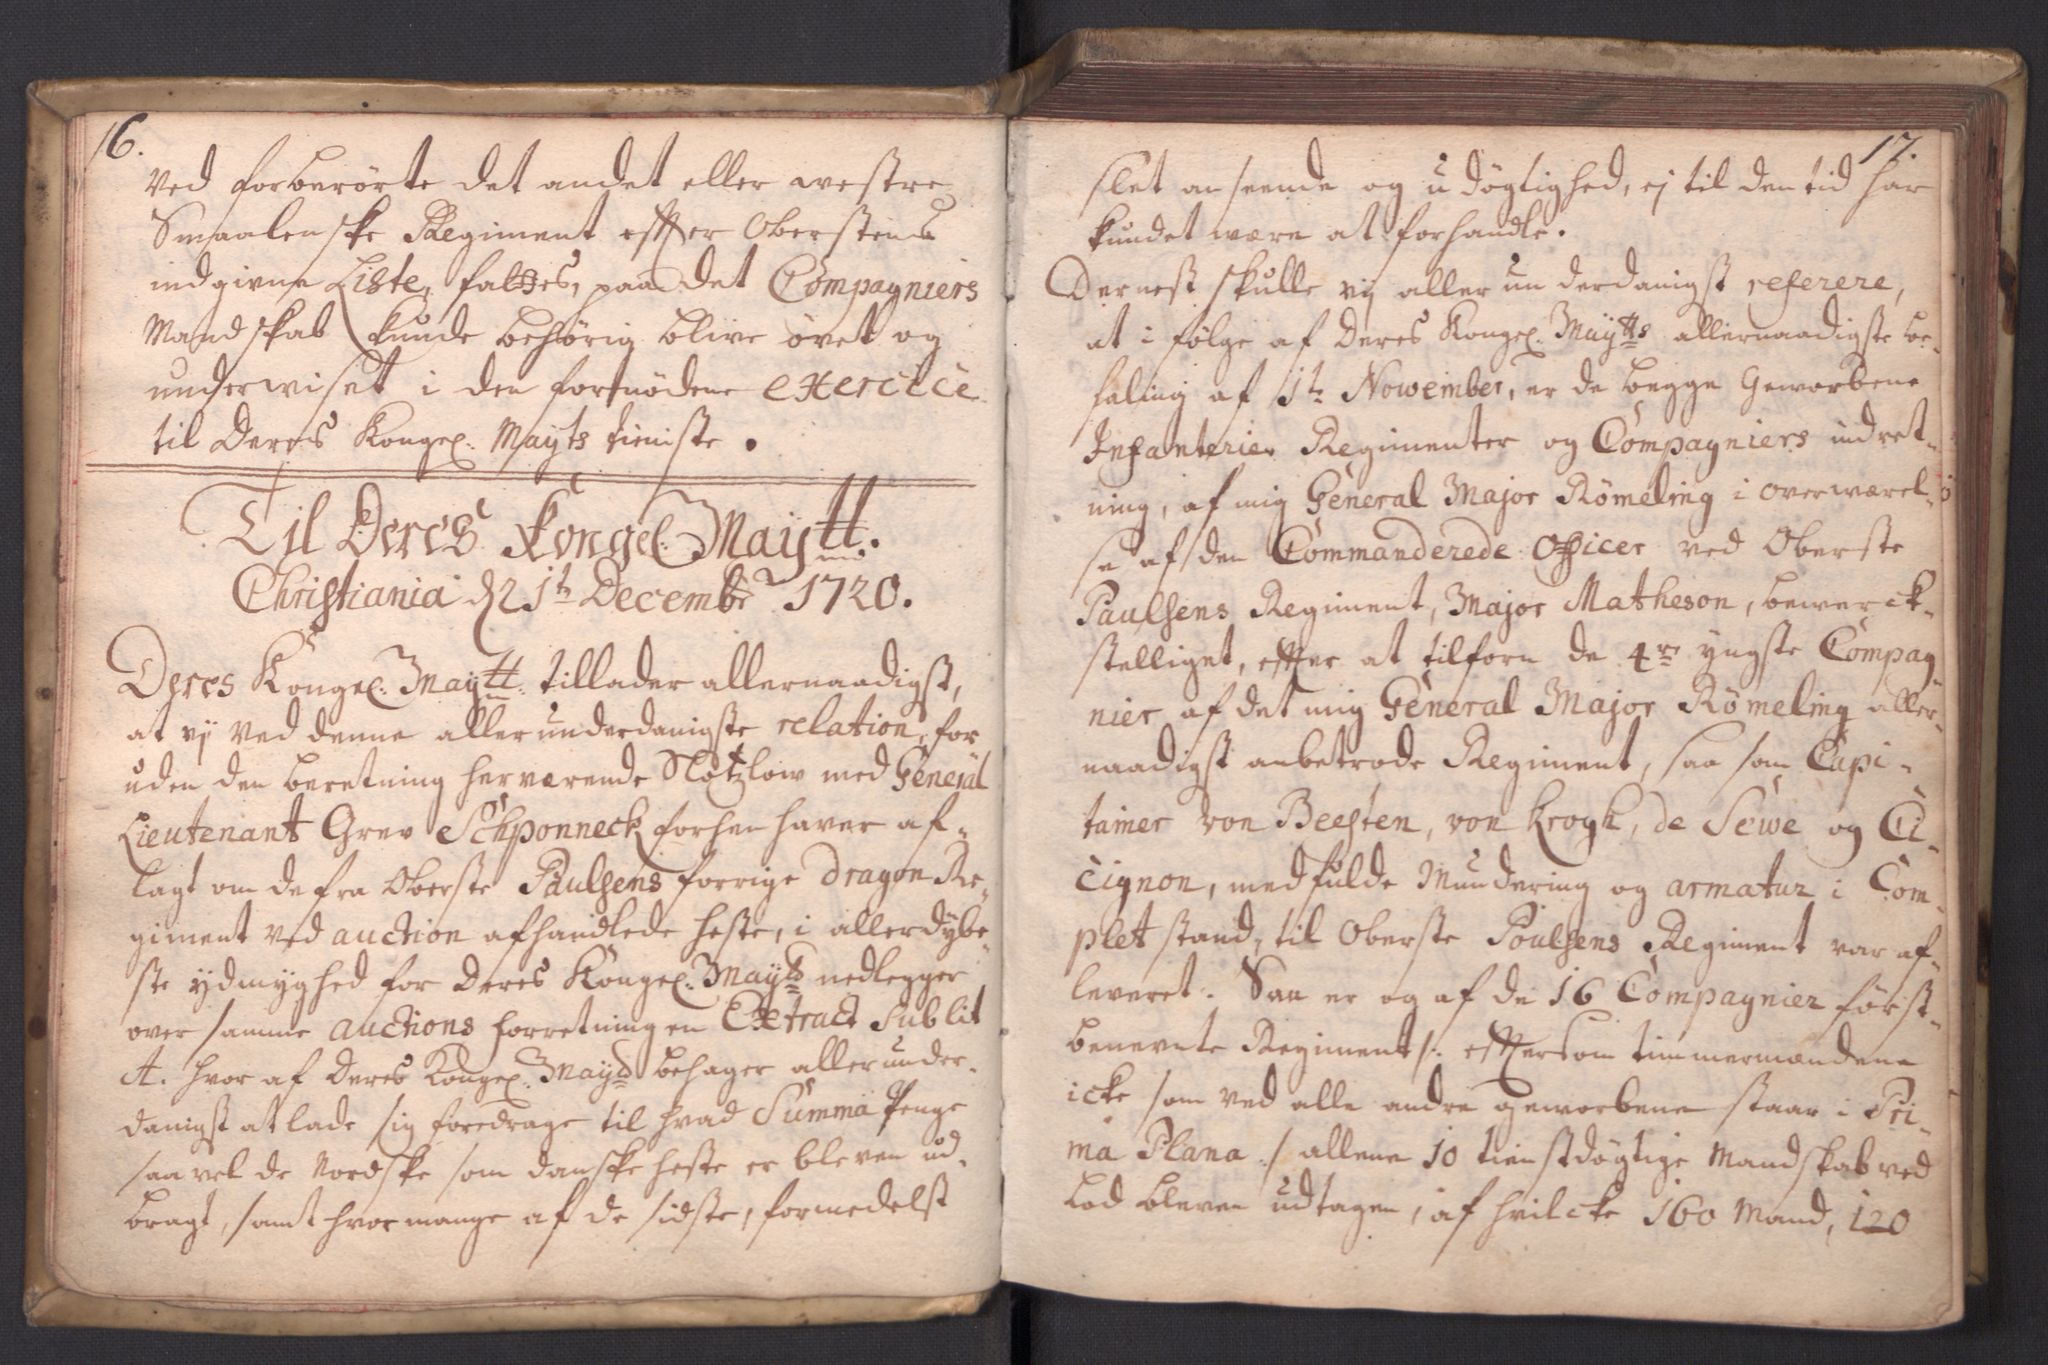 16.
ved forberörte det andet eller westre
Smaalenske Regiment effter Oberstens
indgivne Liste, fattes, paa det Compagniers
Mandskab kunde behörig blive övet og
underwiset i den fornödene exercice
til Deres Kongel: Mayts tieniste.
Til Deres Kongel: Maytt.
Christiania d 21t Decembr 1720.
Deres Kongel: Maytt. tillader allernaadigst,
at vÿ ved denne allerunderdanigste relation, for
uden den beretning herværende Slotzlow med General
Lieutenant Grev Schponneck forhen haver af-
lagt om de fra Oberste Paulsens forrige Dragon Re-
giment ved auction afhandlede heste, i allerdÿbe-
ste ÿdmyghed for Deres Kongel: Maytt nedlegger
over samme auctions forretning en Extract Sub lit
A. hvor af Deres Kongel: Maytt behager allerunder-
danigst at lade sig foredrage til hvad Summa Penge
saa vel de Nordske som danske heste er bleven ud-
bragt, samt hvor mange af de sidste, formedelst
17.
slet anseende og udögtighed, ej til den tid har
kundet være at forhandle.
Dernest skulle vÿ allerunderdanigst referere,
at i fölge af Deres Kongel: Maytts allernaadigste be-
faling af 1t November, er de begge Geworbene
Infanterie Regimenter og Compagniers indret-
ning, af mig General Major Römeling i overwærel-
se af den Commanderede Officer ved Oberste
Paulsens Regiment, Major Matheson, bewerck-
stelliget, effter at tilforn de 4re yngste Compag
nier af det mig General Major Römeling aller-
naadigst anbetrode Regiment, saa som Capi-
tainer von Beesten, von Krogh, de Sewe og Ci-
cignon, med fulde Mundering og armatur i Com-
plet stand, til Oberste Poulsens Regiment var af-
leveret. Saa er og af de 16 Compagnier först-
benevnte Regiment /: efftersom timmermændene
icke som ved alle andre geworbene staar i Pri-
ma Plana :/ allene 10 tienstdögtige Mandskab ved
Lod bleven udtagen, af hvilcke 160 Mand, 120